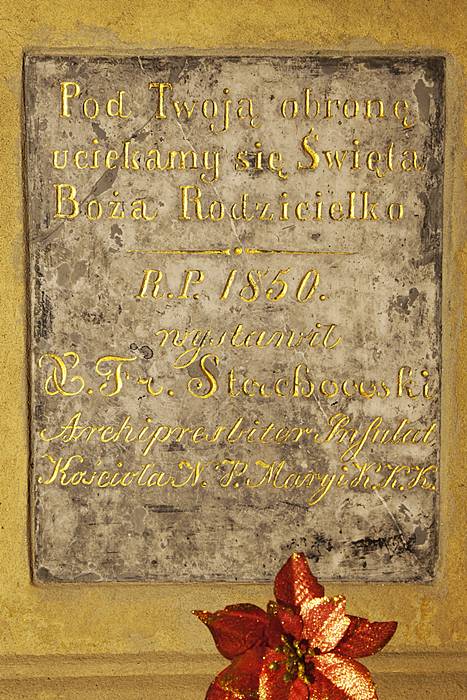 Pod Twoją obronę
uciekamy się Święta
Boża Rodzicielko
R.P. 1850.
wystawił
X. Fr. Stachowski
Archipresbiter Infułat
Kościoła N. P. Maryi K.K.K.